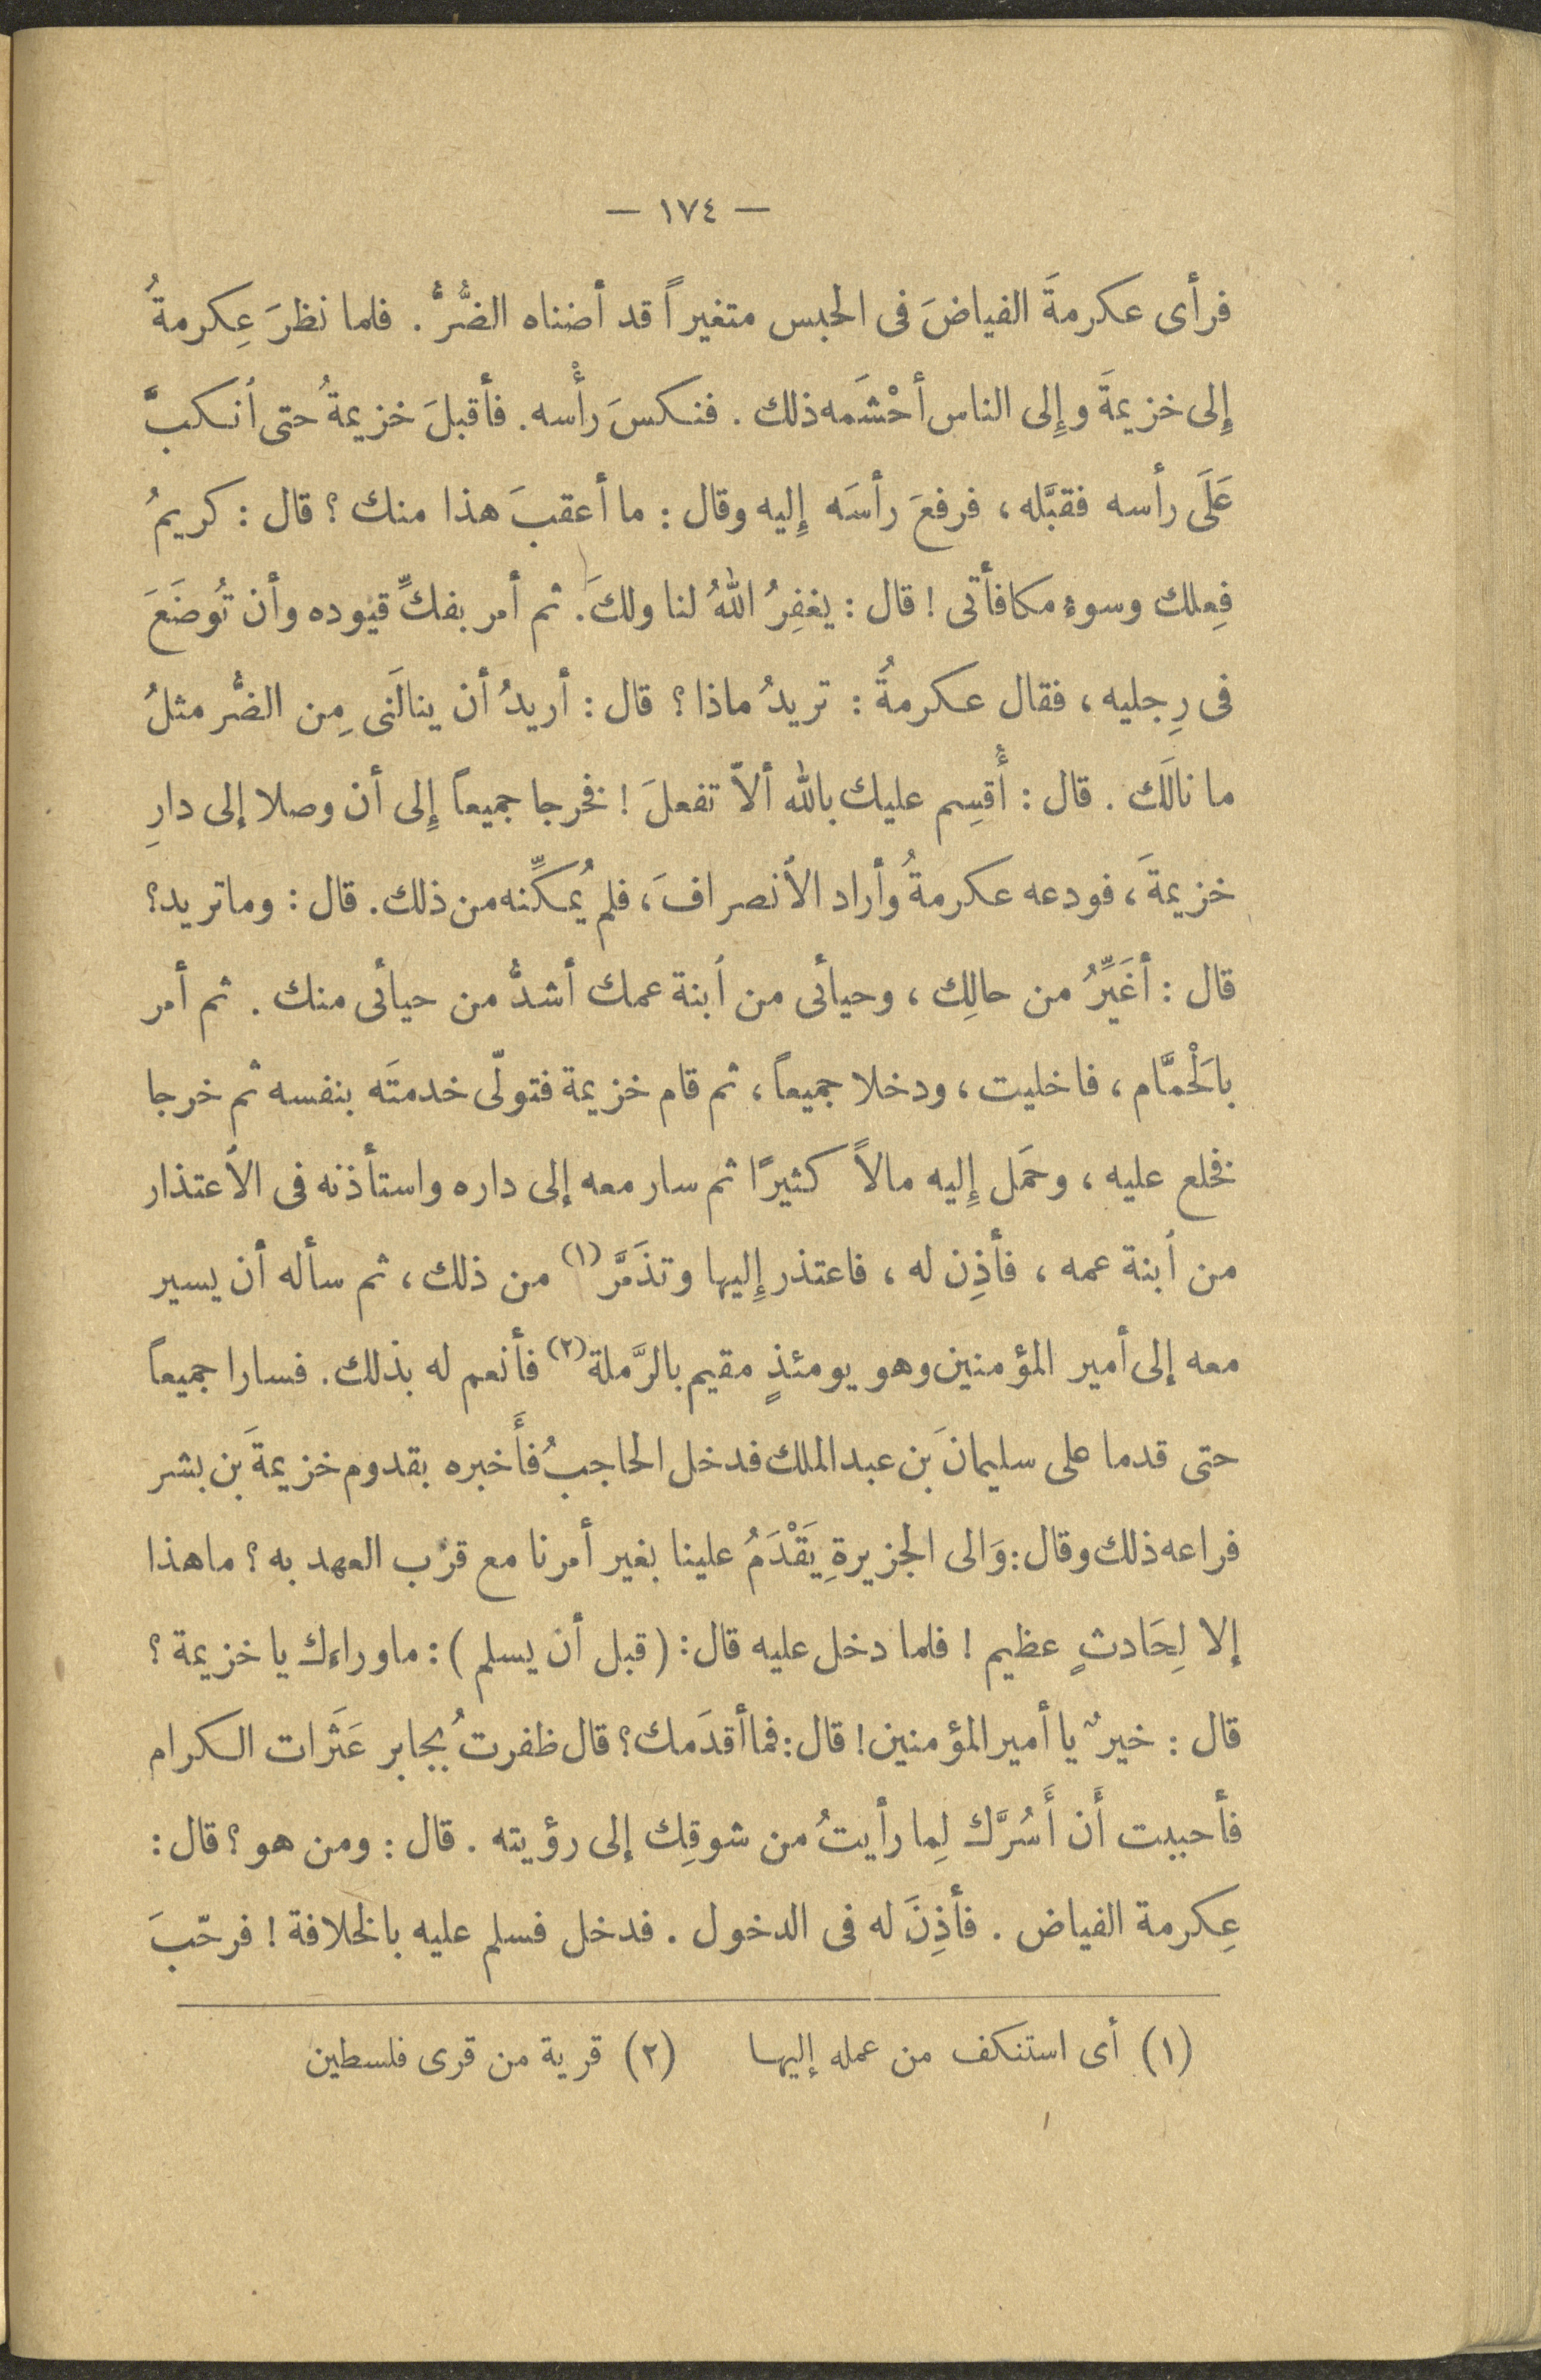 — ١٧٤ —
فرأى عكرمةَ الفياضَ فى الحبس متغيراً قد أضناه الضُّرُّ . فلما نظرَ عِكرمةُ
إِلى خزيمةَ وإِلى الناس أحْشَمه ذلك . فنكسَ رأْسه . فأقبلَ خزيمةُ حتى اٌنكبَّ
عَلَى رأسه فقبَّله ، فرفعَ رأسَه إِليه وقال : ما أعقبَ هذا منك ؟ قال : كريمُ
فِعلك وسوءُ مكافأتى ! قال : يغفِرُ اللهُ لنا ولكَ . ثم أمر بفكِّ قيوده وأن تُوضَعَ
فى رِجليه ، فقال عكرمةُ : تريدُ ماذا ؟ قال : أريدُ أن ينالَنى مِن الضُّر مثلُ
ما نالَك . قال : أُقسِم عليك بالله ألاّ تفعلَ ! فخرجا جميعاً إِلى أن وصلا إلى دارِ
خزيمةَ ، فودعه عكرمةُ وأراد الاٌنصرافَ ، فلم يُمكِّنه من ذلك . قال : وما تريد ؟
قال : أغَيِّرُ من حالِك ، وحيائى من اٌبنة عمك أشدُّ من حيائى منك . ثم أمر
بالَحْمَّام ، فاخليت ، ودخلا جميعاً ، ثم قام خزيمة فتولّى خدمتَه بنفسه ثم خرجا
فخلع عليه ، وحمَل إِليه مالاً كثيرًا ثم سار معه إلى داره واستأذنه فى الاٌعتذار
من اٌبنة عمه ، فأذِن له ، فاعتذر إِليها وتذَمَّر (١) من ذلك ، ثم سأله أن يسير
معه إلى أمير المؤمنين وهو يومئذٍ مقيم بالرَّملة (٢) فأنعم له بذلك . فسارا جميعاً
حتى قدما على سليمانَ بن عبد الملك فدخل الحاجبُ فأَخبره بقدوم خزيمةَ بن بشر
فراعه ذلك وقال : وَالى الجزيرةِ يَقْدَمُ علينا بغير أمرنا مع قرْب العهد به ؟ ما هذا
إلا لِحَادثٍ عظيم ! فلما دخل عليه قال : (قبل أن يسلم) : ما وراءك يا خزيمة ؟
قال : خيرٌ يا أمير المؤمنين ! قال : فما أقدَمك ؟ قال ظفرتُ بجابر عَثَرات الكرام
فأحببت أَن أَسُرَّك لِما رأيتُ من شوقِك إلى رؤيته . قال : ومن هو ؟ قال :
عِكرمة الفياض . فأذِنَ له فى الدخول . فدخل فسلم عليه بالخلافة ! فرحّبَ
(١) أى استنكف من عمله إليها (٢) قرية من قرى فلسطين